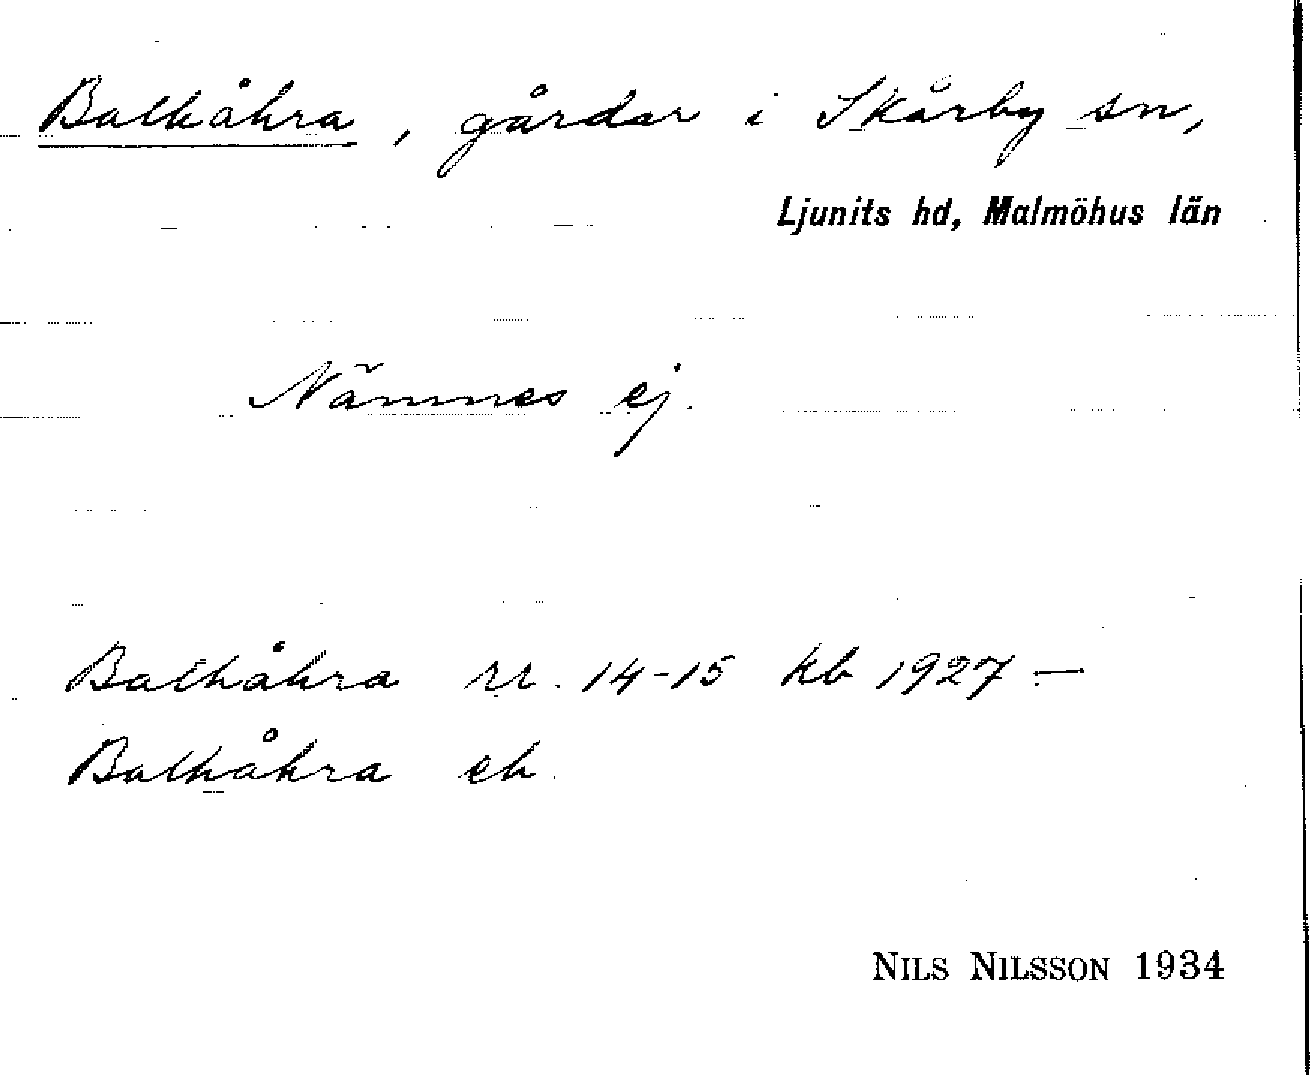 Balkåkra, gårdar i Skårby sn,
Ljunits hd, Malmöhus län
Nämnes ej.
Balkåkra nr. 14-15 kb 1927 —
Balkåkra ek.
NILS NILSSON 1934